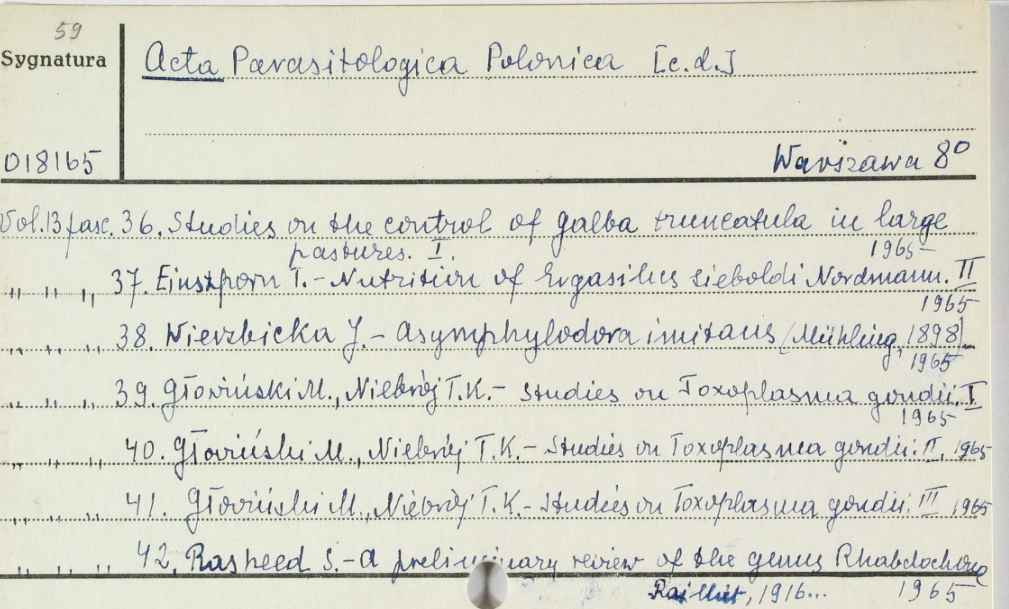 59
Sygnatura
Acta Parasitologica Polonica [c.d.]
018165
Warszawa 8°
Vol. 13 fasc. 36. Studies on the control of Galba truncatula in large
pastures. I. 1965
" " " 37. Einszporn T. - Nutrition of Ergasilus sieboldi Nordmann. II
1965
" " " 38. Wierzbicka J. - Asymphylodora imitans (Mühling, 1898).
1965
" " " 39. Głowiński M., Niebrój T.K. - Studies on Toxoplasma gondii. I
1965
" " " 40. Głowiński M., Niebrój T.K. - Studies on Toxoplasma gondii. II. 1965
" " " 41. Głowiński M., Niebrój T.K. - Studies on Toxoplasma gondii. III 1965
" " " 42. Rasheed S. - A preliminary review of the genus Rhabdochona
Railliet, 1916... 1965